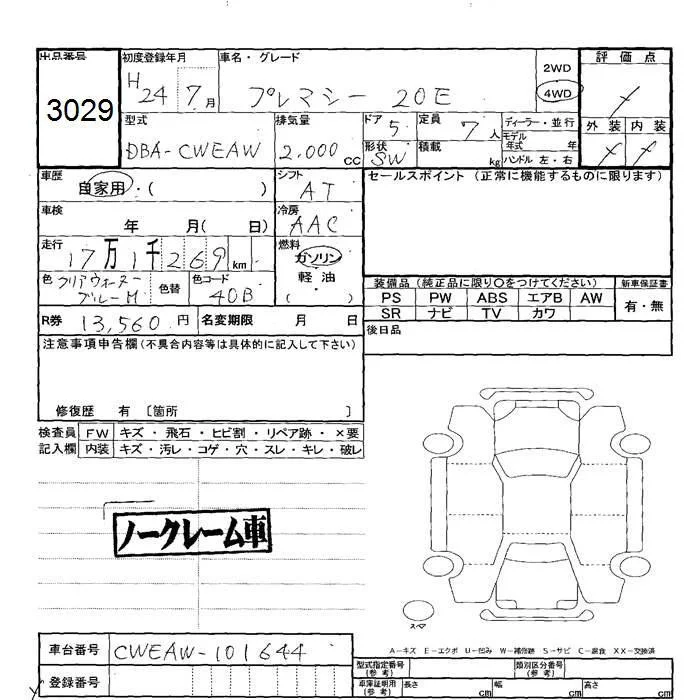 出品番号 初度登録年月 車名・グレード 2WD 4WD 評価点
3029 H24 7月 プレマシー 20E
外装 内装
型式 排気量 ドア 5 定員 7人 ディーラー・並行
モデル年式 年
DBA-CWEAW 2,000cc 形状 SW 積載 kg ハンドル 左・右
車歴 自家用・( ) シフト AT セールスポイント (正常に機能するものに限ります)
車検 年 月( 日) 冷房 AAC
走行 17万1千269km 燃料 ガソリン
軽・油
( )
色 クリアウォーターブルーM 色替 色コード 40B
装備品 (純正品に限り○をつけてください) 新車保証書
PS PW ABS エアB AW 有・無
SR ナビ TV カワ
R券 13,560円 名変期限 月 日
後日品
注意事項申告欄(不具合内容等は具体的に記入して下さい)
修復歴 有 〔箇所 〕
検査員 FW キズ・飛石・ヒビ割・リペア跡・×要
記入欄 内装 キズ・汚レ・コゲ・穴・スレ・キレ・破レ
ノークレーム車
スペア
A-キズ E-エクボ U-凹み W-補修跡 S-サビ C-腐食 XX-交換済
車台番号 CWEAW-101644
登録番号
型式指定番号(参考) 類別区分番号(参考)
車庫証明用(参考) 長さ cm 幅 cm 高さ cm